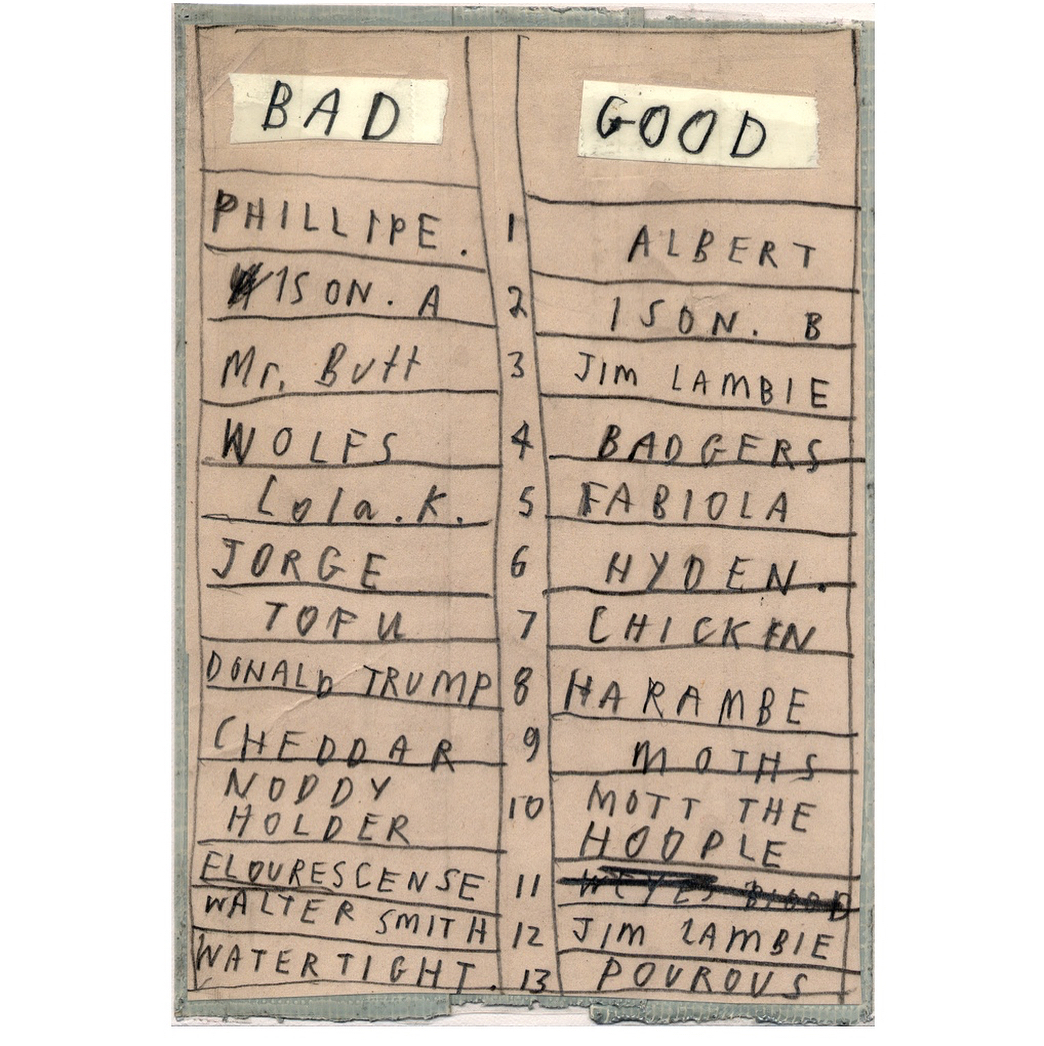 BAD GOOD
PHILLIPE. 1 ALBERT
ISON. A 2 ISON. B
Mr. Butt 3 JIM LAMBIE
WOLFS 4 BADGERS
Lola.K. 5 FABIOLA
JORGE 6 HYDEN.
TOFU 7 CHICKEN
DONALD TRUMP 8 HARAMBE
CHEDDAR 9 MOTHS
NODDY HOLDER 10 MOTT THE HOOPLE
FLOURESCENSE 11 WEYES BLOOD
WALTER SMITH 12 JIM LAMBIE
WATERTIGHT. 13 POUROUS